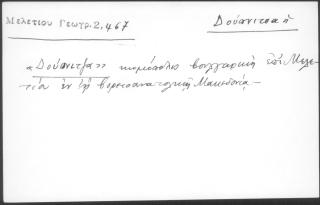 Μελετίου Γεωγρ.2,467
Δούανιτσα ἡ
«Δούανιτζα» κωμόπολις βουλγαρικὴ ἐπὶ Μελε-
τίου ἐν τῇ βορειοανατολικῇ Μακεδονίᾳ.—